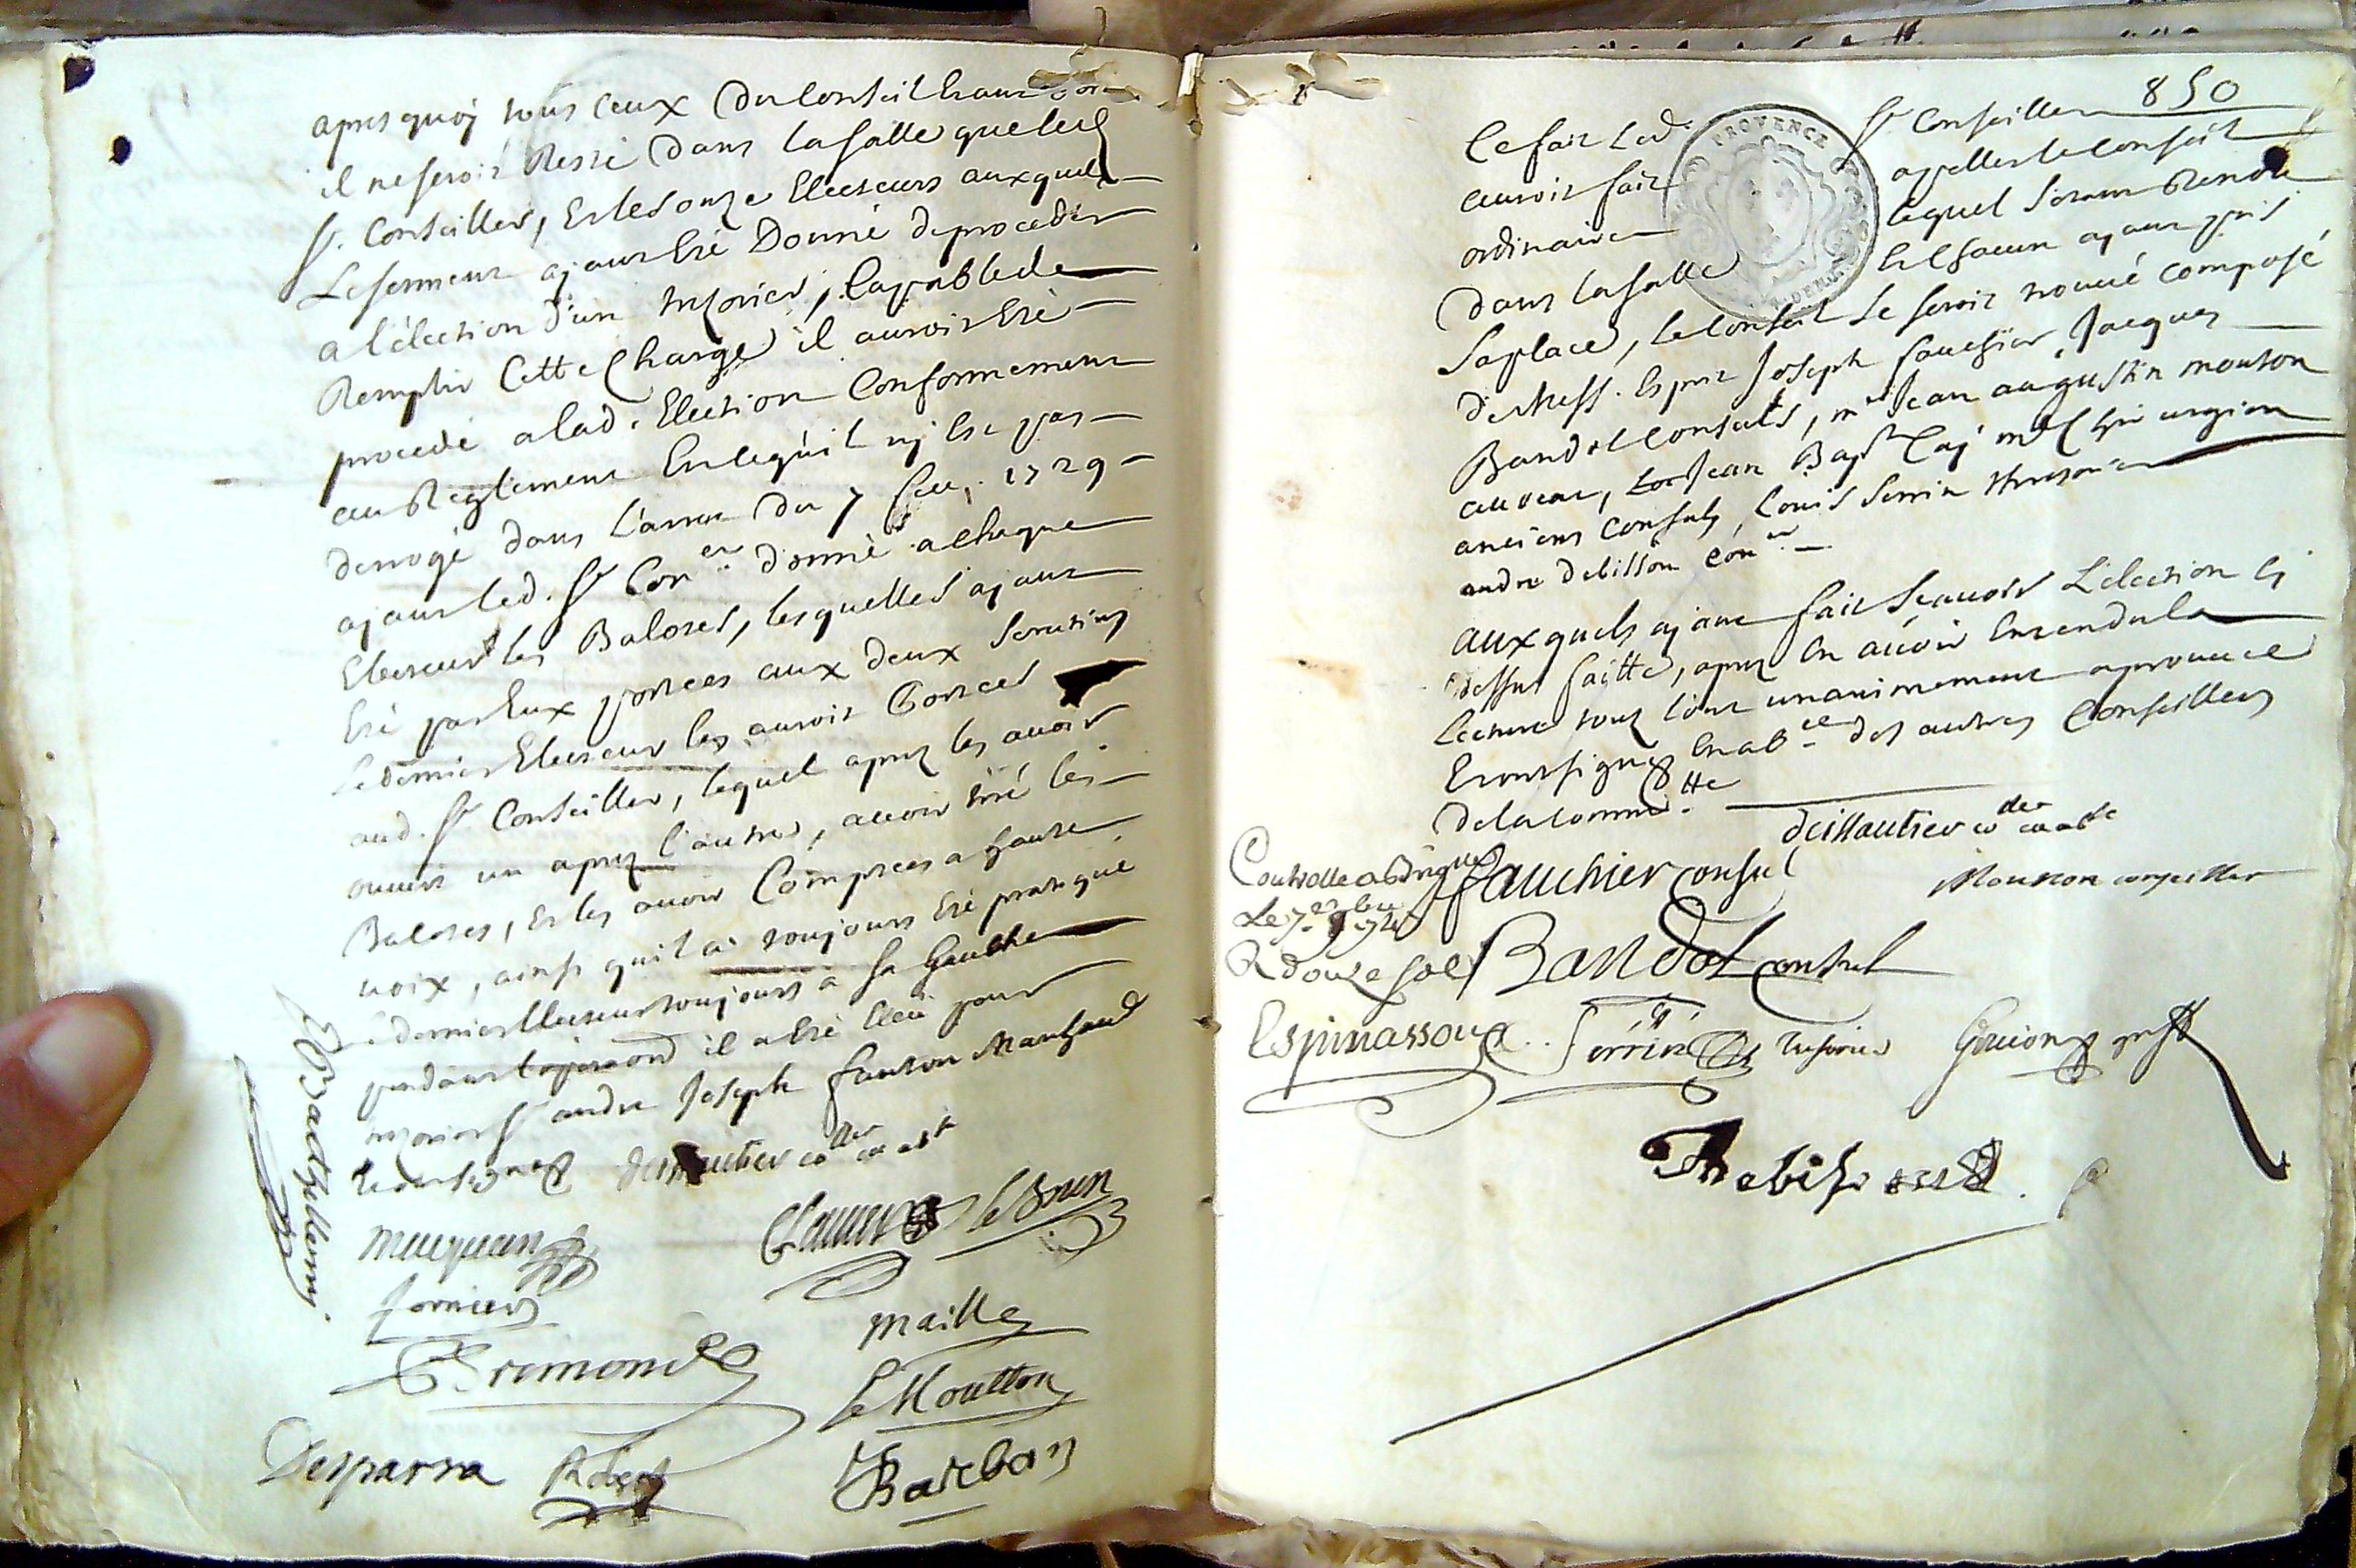 apres quoy tous ceux du Conseil
il ne seroit Resté dans la salle que led
Sr. Conseiller, Et les onze Electeurs auxquels
Le serment ayant Eté Donné de proceder
a l'election d'un tresorier, Capable de
Remplir Cette Charge il auroit Eté
procedé a lad. Election Conformement
au Reglement En ce qu'il n'y Est pas
derrogé dans l'arret du 7 1729
ayant led. Sr Coner donné a chaque
Electeur les Balotes, lesquelles ayant
Eté par Eux portées aux deux scrutins
Le dernier Electeur les auroit
aud. Sr Conseiller, lequel apres les avoir
ouverts un apres l'autre, avoir tiré les
Balotes, Et les avoir Comptées a haute
voix, ainsi qu'il a toujours Eté pratiqué
Le dernier Electeur toujours a sa Gauche
il a Eté Eleu pour
tresorier Sr andre Joseph fauton Marchand
Et ont signez
Clauure le Brun
forniers
maille
remonde
Le Moutton
Desparra Robert
Barban
850
Ce fait Led Sr Conseiller
auroit fait apeller le Conseil
ordinaire lequel s'etant Rendu
Dans la salle Et chacun ayant pris
Sa place, le Conseil se seroit trouvé Composé
de Mess. Esprit Joseph fauchier, Jacques
Bandol Consuls, me Jean augustin mouton
avocat, Jean Bapte Caÿ me Chirurgien
anciens Consuls, Louis serrin tresorier
andre debisson Coner
auxquels ayant fait sçavoir L'election Cy
dessus faitte, apres En avoir Entendu la
lecture tous l'ont unanimement aprouvée
Et ont signez En abce des autres Conseillers
de la Commtte
Controllé a
Le 7e
R douze sols
fauchier Consul
Mouton conseiller
Bandol Consul
Espinassoux
Serrin tresorier
Guion greff
Debisson
PROVENCE